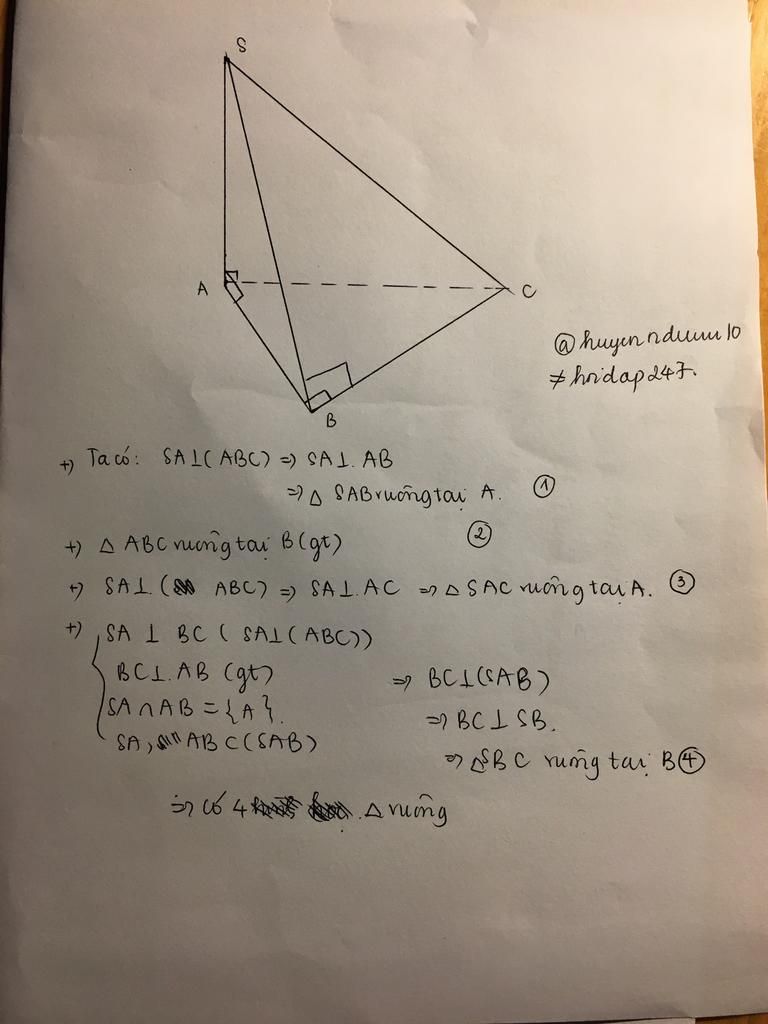 S
A
C
B
@huyennduuu10
≠hoidap247.
+) Ta có: SA⊥(ABC) => SA⊥AB
=> △ SAB vuông tại A. ①
+) △ ABC vuông tại B (gt) ②
+) SA⊥(ABC) => SA⊥AC => △ SAC vuông tại A. ③
+) SA ⊥ BC ( SA⊥(ABC))
BC⊥AB (gt) => BC⊥(SAB)
SA ∩ AB = {A}. => BC ⊥ SB.
SA, AB ⊂ (SAB) => △SBC vuông tại B ④
=> có 4 △ vuông